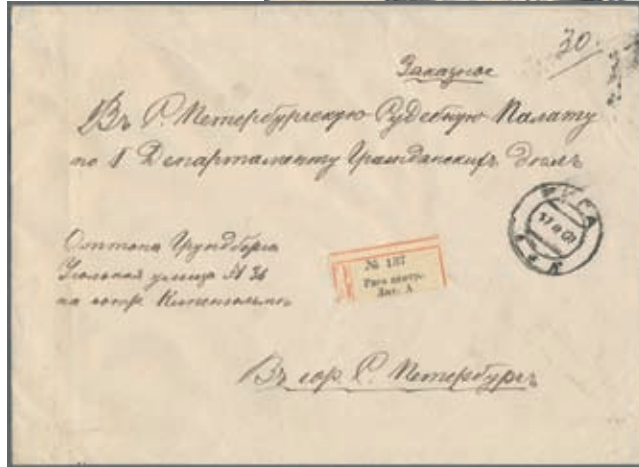 30.
Заказное
Въ С. Петербургскую Судебную Палату
по 1 Департаменту Гражданскихъ Дѣлъ
РИГА
17
Оттона Грундберга
Угольная улица № 36
на остр. Кипенгольмъ
№ 137
Рига центр.
Лит. А
Въ гор. С. Петербургъ